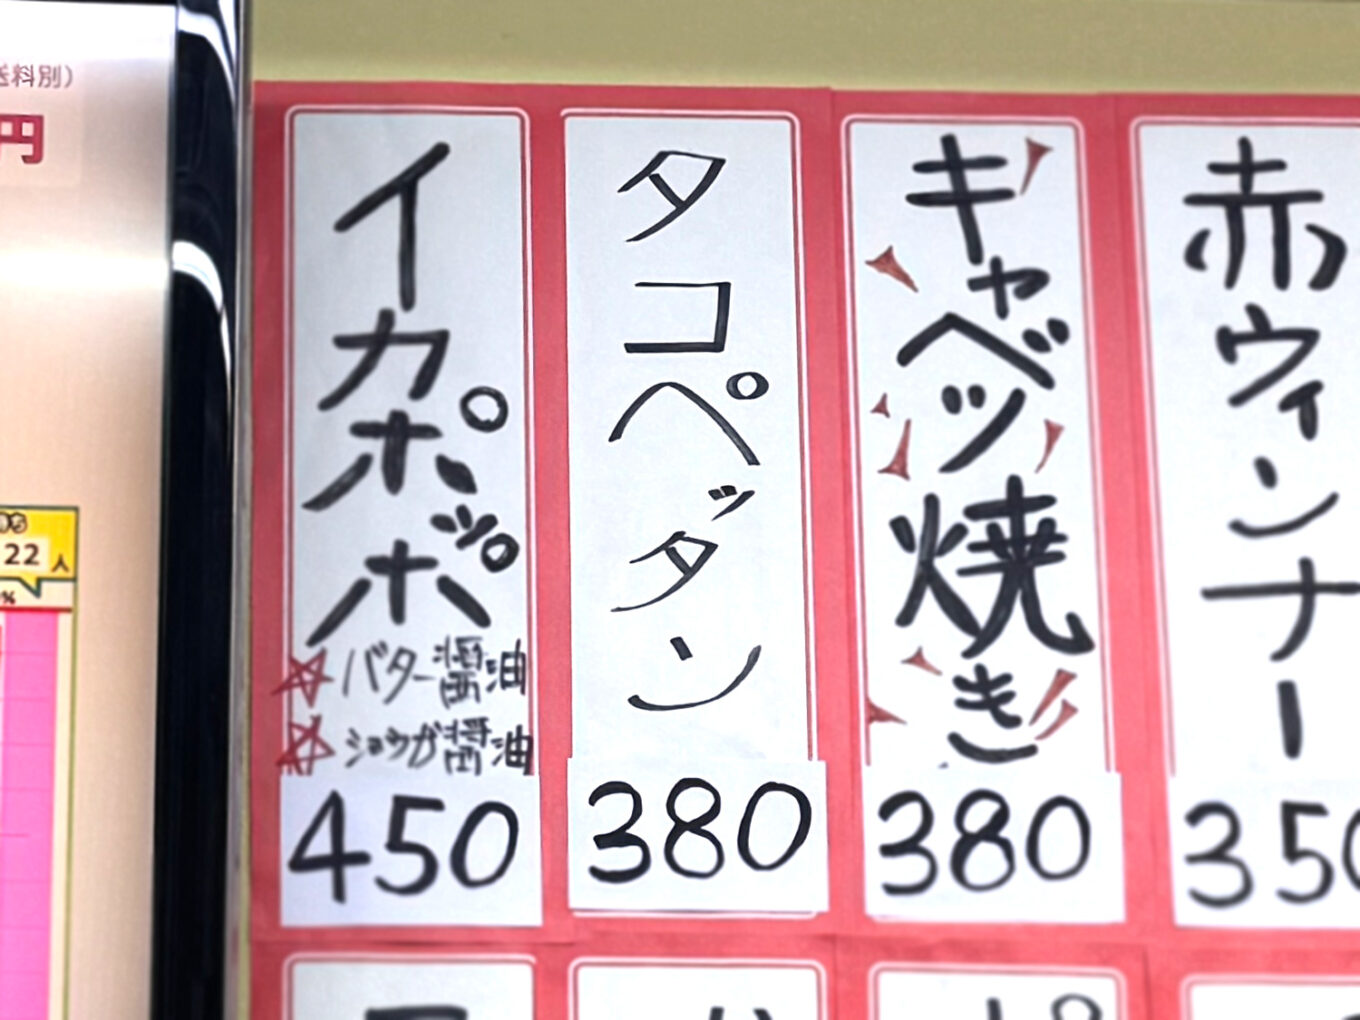 送料別)
円
22人
%
イカポッポ
☆バター醤油
☆ショウガ醤油
450
タコペッタン
380
キャベツ焼き
380
赤ウィンナー
350